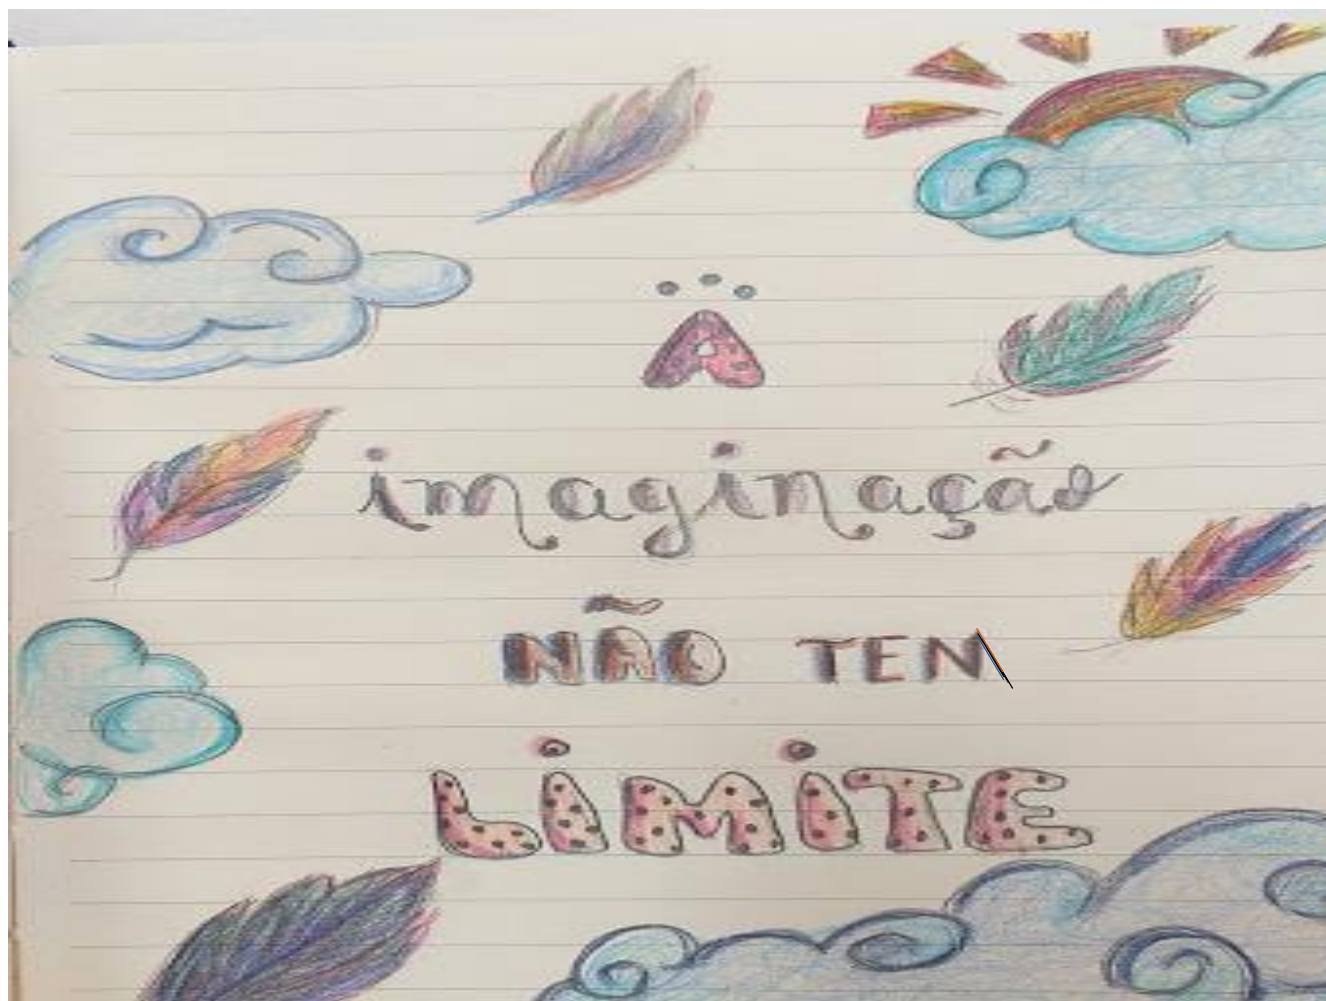 A
imaginação
NÃO TEM
LIMITE